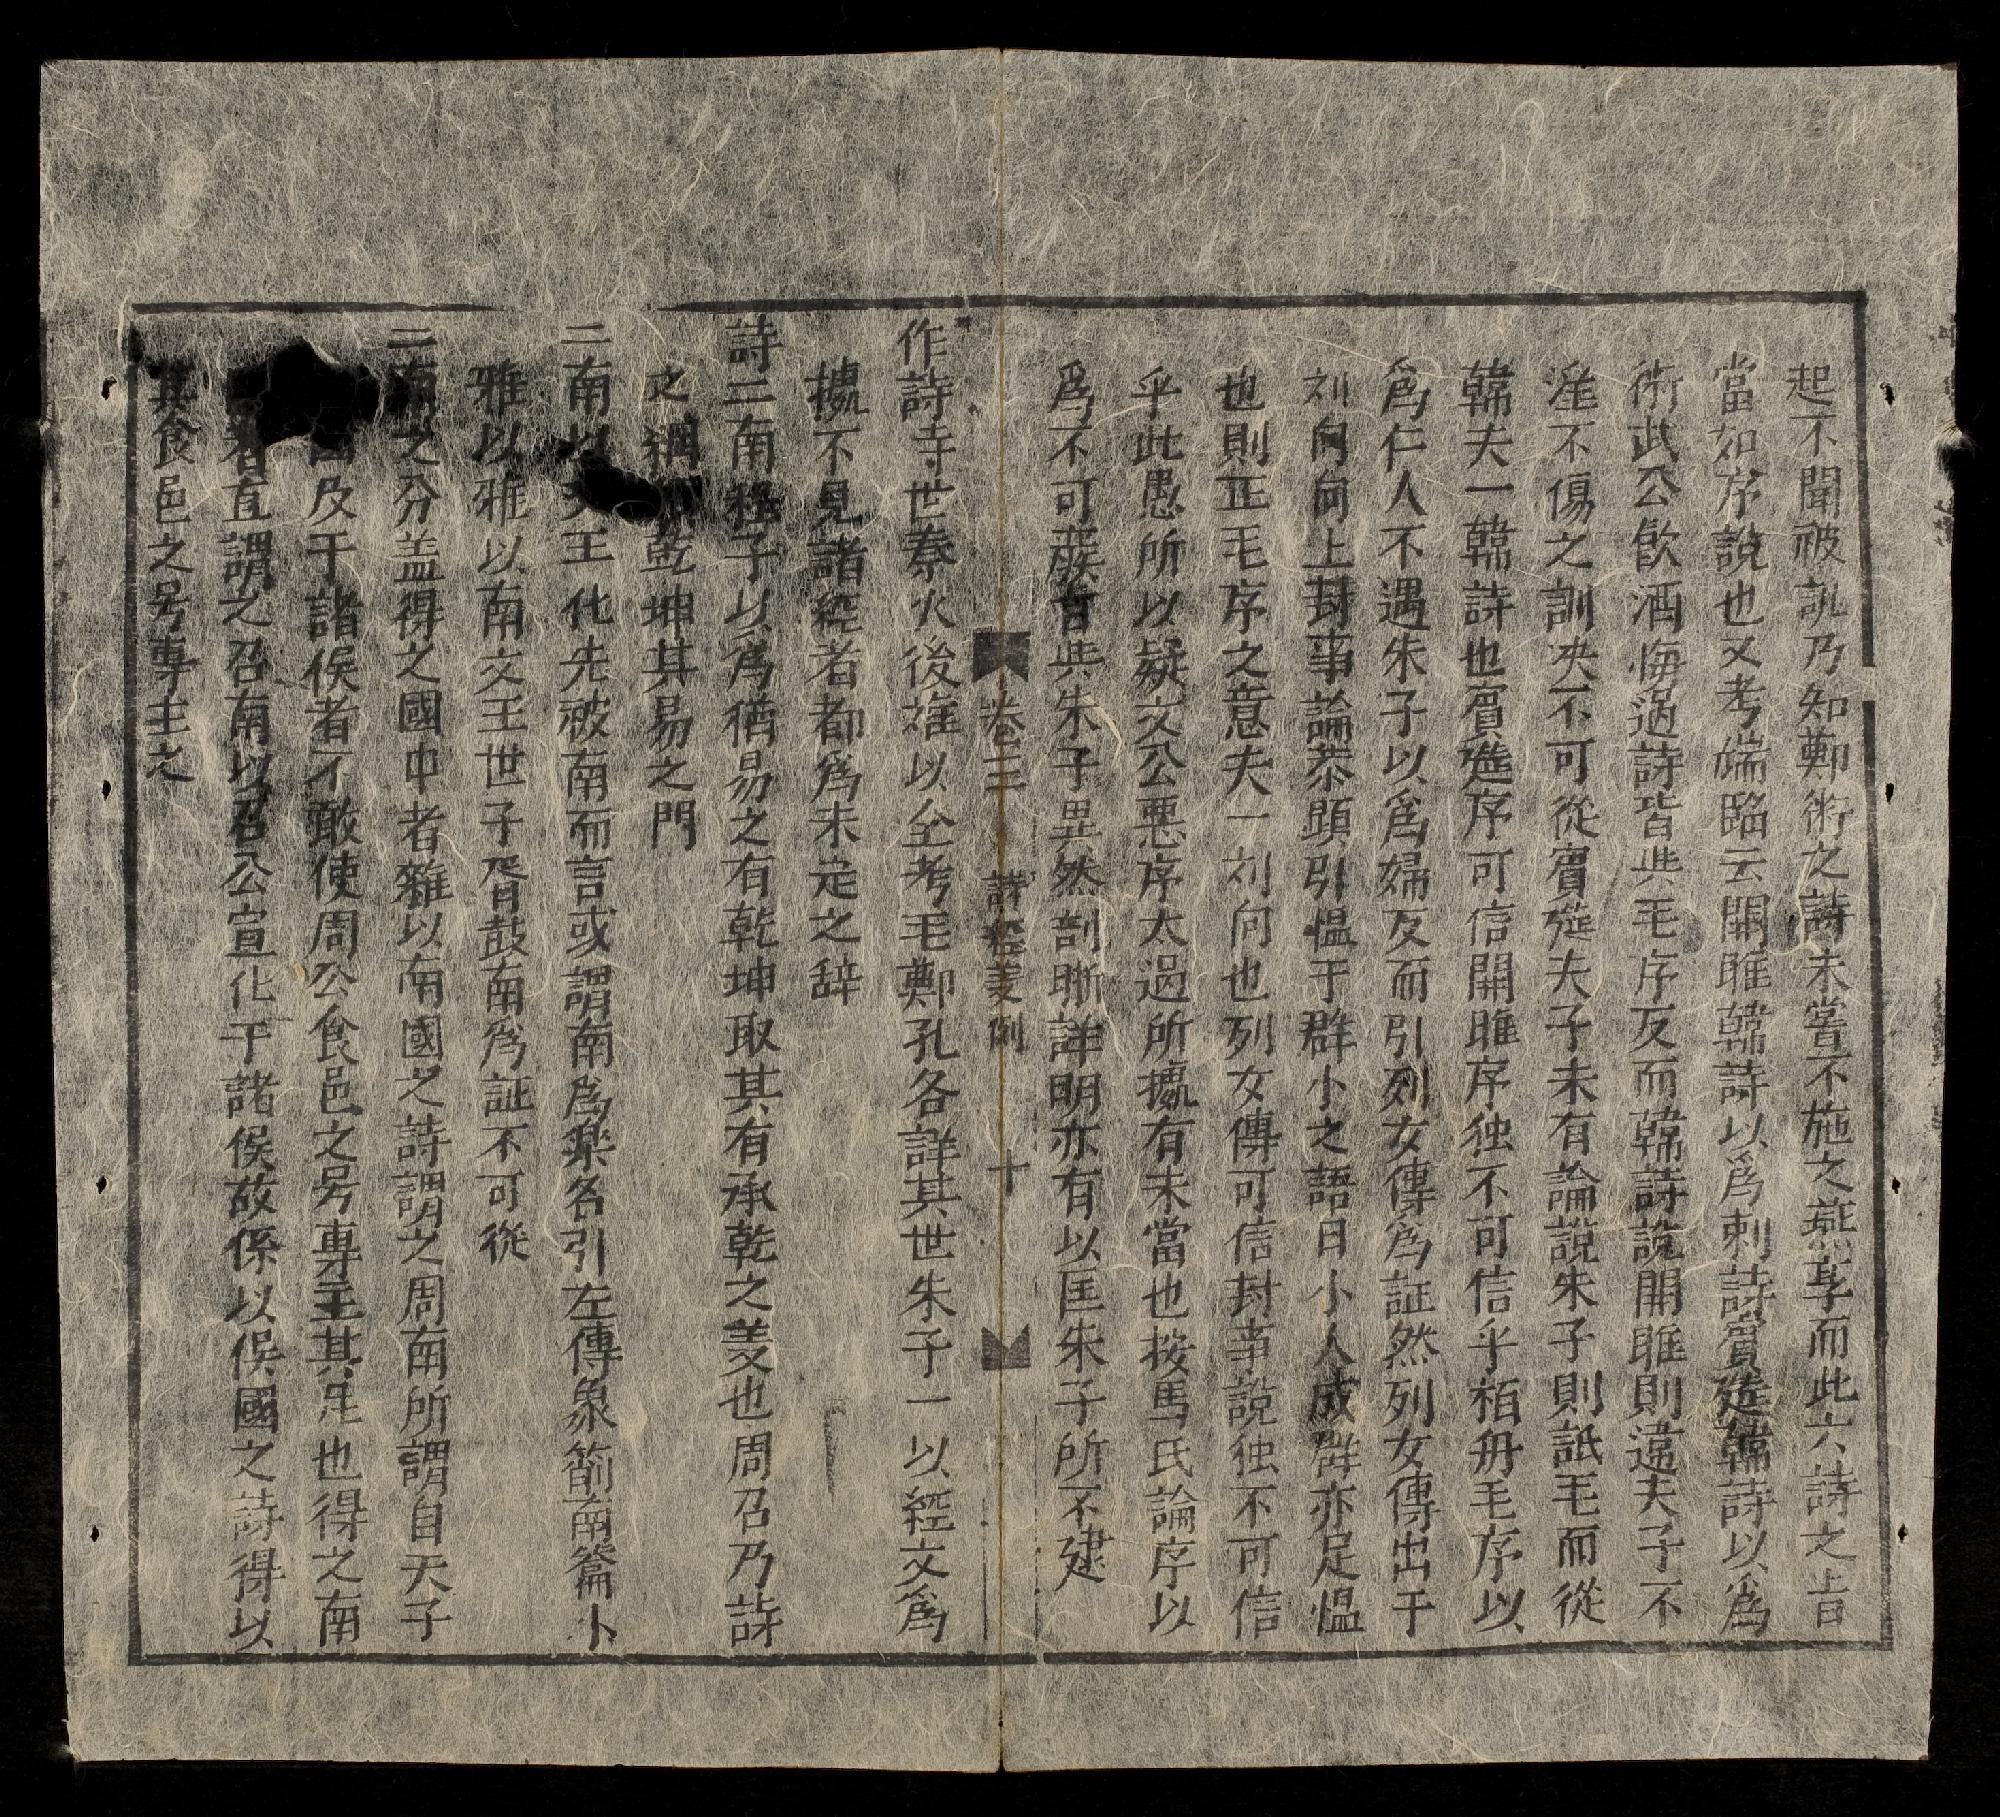 起不聞被訊乃知鄭術之詩未嘗不施之燕享而此六詩之旨
當如序說也又考端臨云關雎韓詩以爲刺詩賓筵韓詩以爲
術武公飲酒悔過詩皆與毛序反而韓詩說開雎則違夫子不
淫不傷之訓决不可從賓筵夫子未有論說朱子則詆毛而從
韓夫一韓詩也賓筵序可信開雎序独不可信乎栢舟毛序以
爲仁人不遇朱子以爲婦反而引列女傳爲証然列女傳出于
刘向向上封事論恭顕引愠于群小之語曰小人成群亦足愠
也則正毛序之意夫一刘向也列女傳可信封事說独不可信
乎此愚所以疑文公惡序太過所據有未當也按馬氏論序以
爲不可廢旨與朱子異然剖晰詳明亦有以匡朱子所不逮
卷三 詩經義例 十
作詩寺世寮火後雄以全考毛鄭孔各詳其世朱子一以經文爲
據不見諸經者都爲未定之辞
詩二南程子以爲猶易之有乾坤取其有承乾之義也周召乃詩
之綱 乾坤其易之門
二南以文王化先被南而言或謂南爲樂名引左傳象箾南籥小
雅以雅以南文王世子胥鼓南爲証不可從
二南之分盖得之國中者雜以南國之詩謂之周南所謂自天子
國及于諸侯者不敢使周公食邑之号專主其是也得之南
者直謂之召南以召公宣化于諸侯故係以侯國之詩得以
其食邑之号專主之